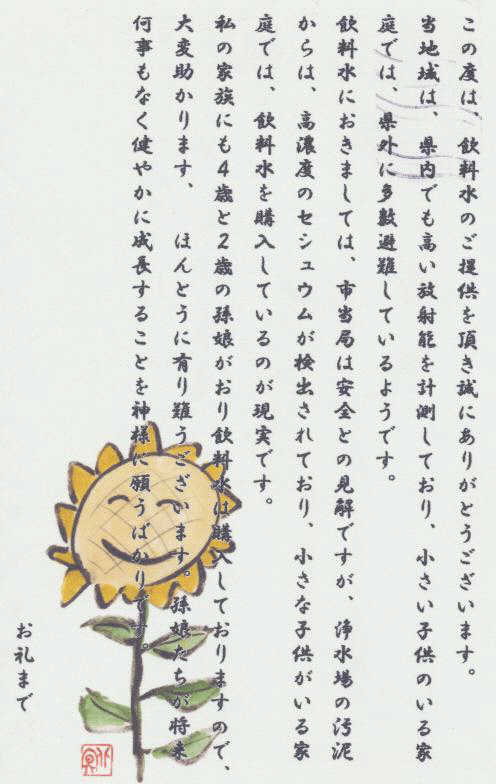 この度は、飲料水のご提供を頂き誠にありがとうございます。
当地域は、県内でも高い放射能を計測しており、小さい子供のいる家
庭では、県外に多数避難しているようです。
飲料水におきましては、市当局は安全との見解ですが、浄水場の汚泥
からは、高濃度のセシュウムが検出されており、小さな子供がいる家
庭では、飲料水を購入しているのが現実です。
私の家族にも4歳と2歳の孫娘がおり飲料水は購入しておりますので、
大変助かります、 ほんとうに有り難うございます。孫娘たちが将来
何事もなく健やかに成長することを神様に願うばかりです。
お礼まで